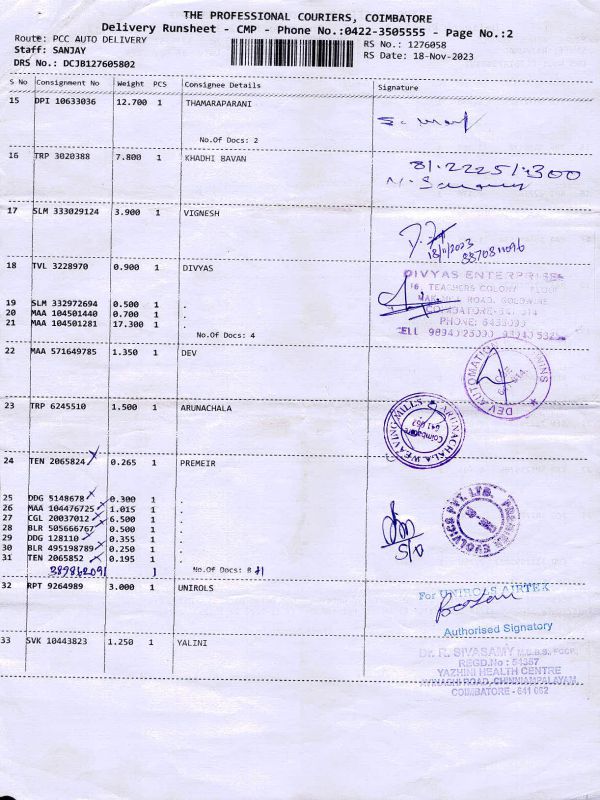 THE PROFESSIONAL COURIERS, COIMBATORE
Delivery Runsheet - CMP - Phone No.:0422-3505555 - Page No.:2
Route: PCC AUTO DELIVERY
RS No.: 1276058
Staff: SANJAY
RS Date: 18-Nov-2023
DRS No.: DCJB127605802
S No Consignment No Weight PCS Consignee Details Signature
15 DPI 10633036 12.700 1 THAMARAPARANI
No.Of Docs: 2
16 TRP 3020388 7.800 1 KHADHI BAVAN
17 SLM 333029124 3.900 1 VIGNESH
18/11/2023
8870811096
18 TVL 3228970 0.900 1 DIVYAS
DIVYAS ENTERPRISES
TEACHERS COLONY
ROAD, GOLDWINS
COIMBATORE-641 014
PHONE:
CELL
19 SLM 332972694 0.500 1 .
20 MAA 104501440 0.700 1 .
21 MAA 104501281 17.300 1 .
No.Of Docs: 4
22 MAA 571649785 1.350 1 DEV
DEV AUTOMATION
23 TRP 6245510 1.500 1 ARUNACHALA
ARUNACHALA WEAVING MILLS
Coimbatore
641 062
24 TEN 2065824 0.265 1 PREMEIR
25 DDG 5148678 0.300 1 .
26 MAA 104476725 1.015 1 .
27 CGL 20037012 6.500 1 .
28 BLR 505666767 0.500 1 .
29 DDG 128110 0.355 1 .
30 BLR 495198789 0.250 1 .
31 TEN 2065852 0.195 1 .
PREMIER EVOLVICS PVT. LTD.
289862091 1 No.Of Docs: 8
32 RPT 9264989 3.000 1 UNIROLS
For UNIROLS AIRTEX
Authorised Signatory
33 SVK 10443823 1.250 1 YALINI
Dr. R. SIVASAMY M.B.B.S., FCCP.,
REGD.No : 54367
YAZHINI HEALTH CENTRE
AVINASHI ROAD, CHINNIAMPALAYAM,
COIMBATORE - 641 062